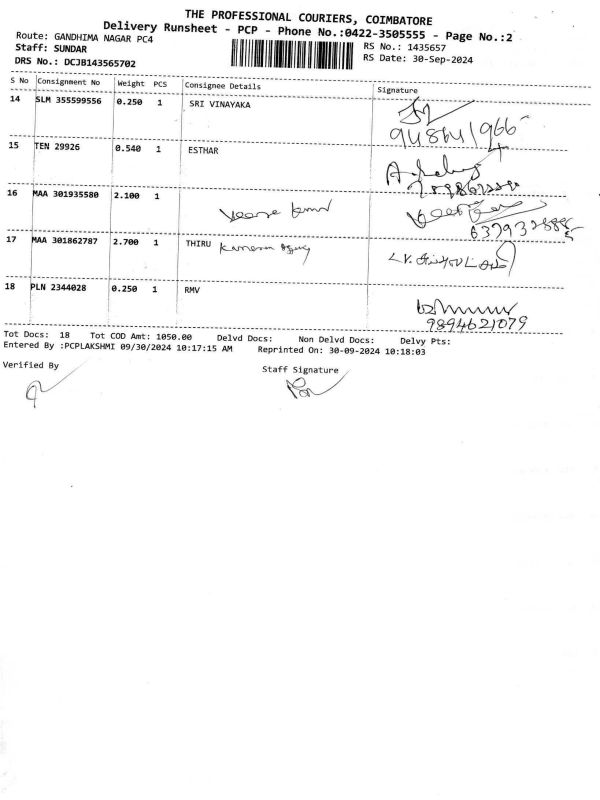 THE PROFESSIONAL COURIERS, COIMBATORE
Delivery Runsheet - PCP - Phone No.:0422-3505555 - Page No.:2
Route: GANDHIMA NAGAR PC4
RS No.: 1435657
Staff: SUNDAR
RS Date: 30-Sep-2024
DRS No.: DCJB143565702
S No Consignment No Weight PCS Consignee Details Signature
14 SLM 355599556 0.250 1 SRI VINAYAKA
15 TEN 29926 0.540 1 ESTHAR
16 MAA 301935580 2.100 1
17 MAA 301862787 2.700 1 THIRU
18 PLN 2344028 0.250 1 RMV
9894621079
Tot Docs: 18 Tot COD Amt: 1050.00 Delvd Docs: Non Delvd Docs: Delvy Pts:
Entered By :PCPLAKSHMI 09/30/2024 10:17:15 AM Reprinted On: 30-09-2024 10:18:03
Verified By
Staff Signature